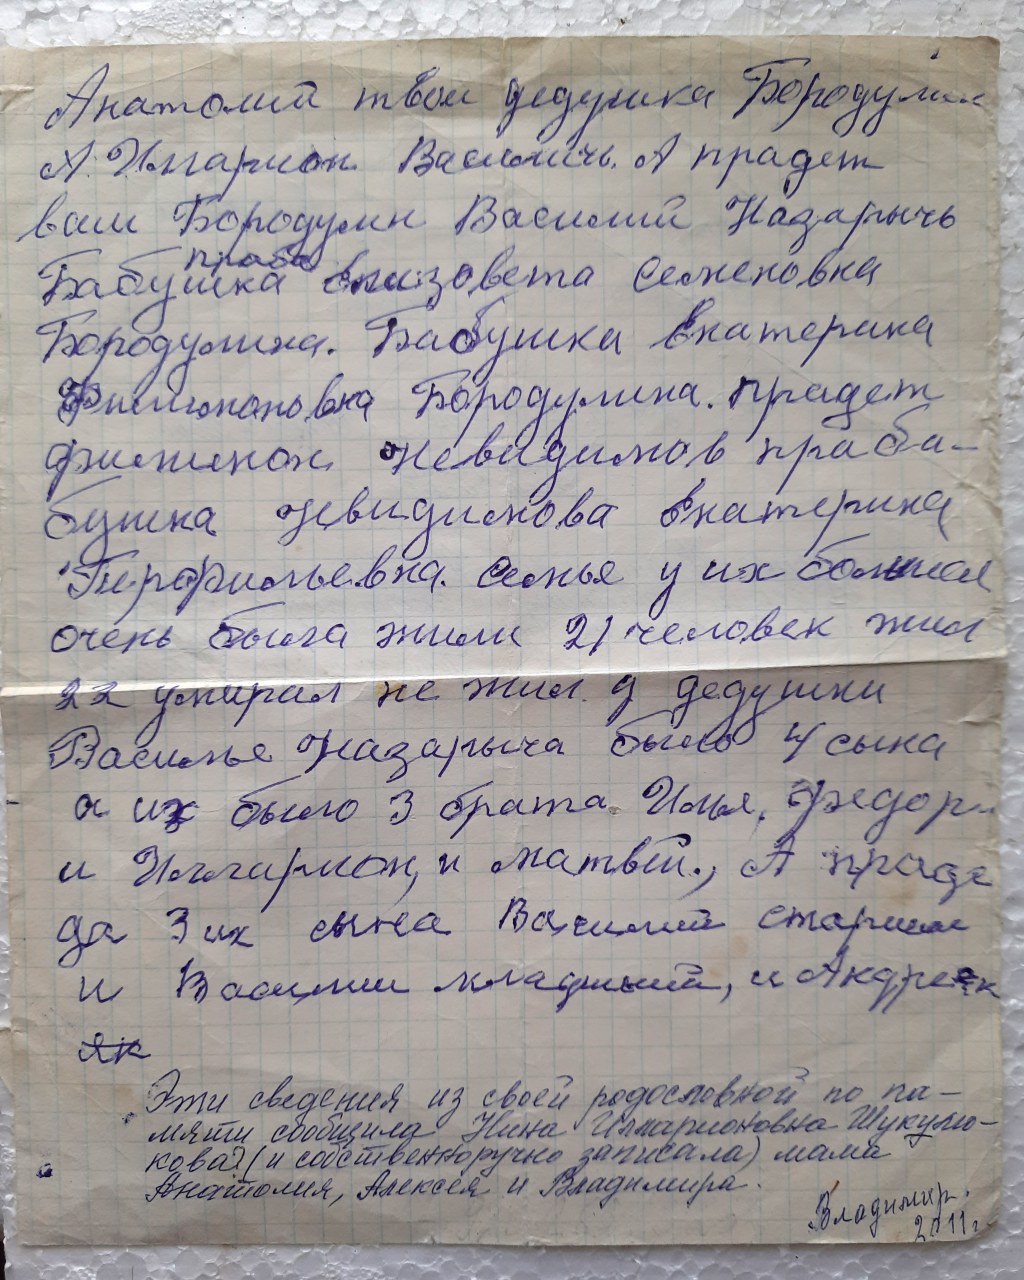 Анатолий твои дедушка Бородулин
А. Иларион Василичь. А прадет
ваш Бородулин Василий Назарычь
праба
Бабушка Елизовета Семеновна
Бородулина. Бабушка Екатерина
Филимоновна Бородулина. прадет
филимон Невидимов праба-
бушка Невидимова Екатерина
Перфильевна. Семья у их большая
очень была жили 21 человек жил
22 умирал не жил. у дедушки
Василье Назарыча было 4 сына
а их было 3 брата Илья, Федор
и Иллариои, и Матвей., А праде
да 3 их сына Василий старший
и Василий младший, и Андреяк
як
Эти сведения из своей родословной по па-
мяти сообщила Нина Илларионовна Шукулю-
кова (и собственноручно записала) мама
Анатолия, Алексея и Владимира.
Владимир.
2011г